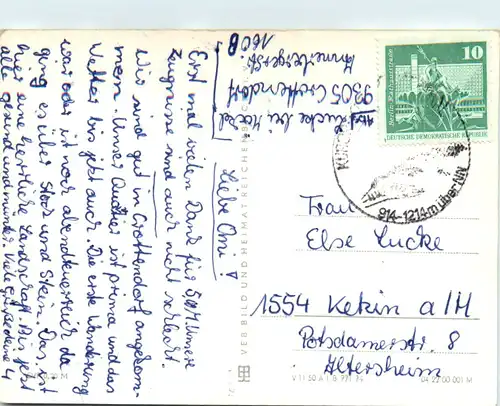 Liebe Omi!
Erst mal vielen Dank für 50M. Unsere
Zeugnisse sind auch nicht schlecht.
Wir sind gut in Crottendorf angekom-
men. Unser Quartier ist prima und das
Wetter bis jetzt auch. Die erste Wanderung
war oder ist noch abendteuerlich da
ging es über Stock und Stein. Das ist
hier eine herrliche Landschaft. Bis jetzt
alle gesund und munter. Viele Grüße deine 4
Lucke bei
9305 Crottendorf
Annaberger Str.
160B
10
DEUTSCHE DEMOKRATISCHE REPUBLIK
914-1214m über NN
Frau
Else Lucke
1554 Ketzin a/H
Potsdamerstr. 8
Altersheim
VEB BILD UND HEIMAT REICHENBACH
V 11 50 A 1 B 971 74
04 27 00 001 M